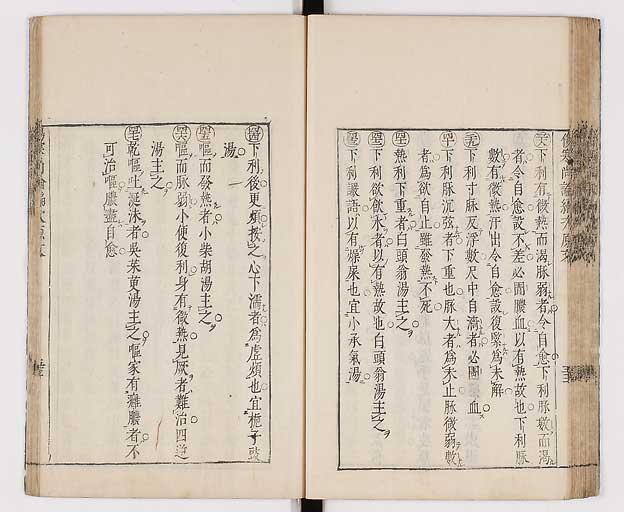 下利有微熱而渴脉弱者令自愈下利脉數而渴
者令自愈設不差必圊膿血以有熱故也下利脉
數有微熱汗出令自愈設復緊爲未解
下利寸脉反浮數尺中自濇者必圊膿血
下利脉沉弦者下重也脉大者爲未止脉微弱數
者爲欲自止雖發熱不死
熱利下重者白頭翁湯主之
下利欲飲水者以有熱故也白頭翁湯主之
下利譫語以有燥屎也宜小承氣湯
下利後更煩按之心下濡者爲虛煩也宜梔子豉
湯
嘔而發熱者小柴胡湯主之
嘔而脉弱小便復利身有微熱見厥者難治四逆
湯主之
乾嘔吐涎沫者吳茱萸湯主之嘔家有癰膿者不
可治嘔膿盡自愈